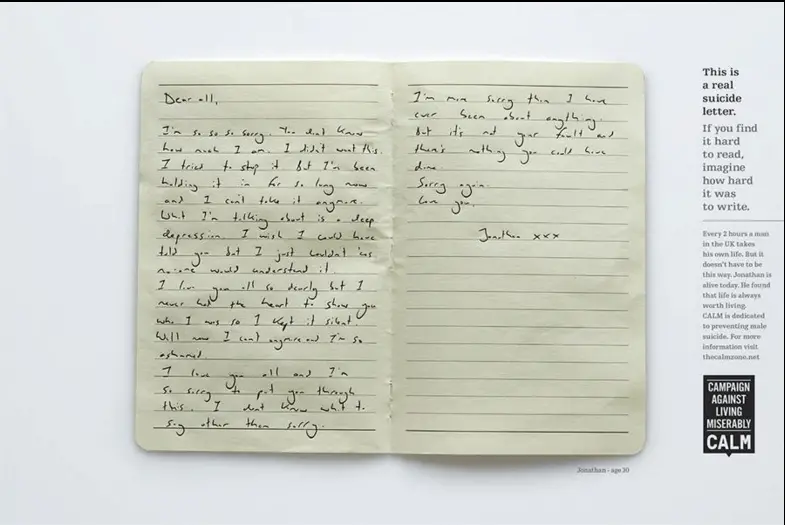 Dear all,
I'm so so so sorry. You don't know
how much I am. I didn't want this.
I tried to stop it but I'm been
holding it in for so long now
and I can't take it anymore.
What I'm talking about is a deep
depression. I wish I could have
told you but I just couldn't 'cos
no-one would understand it.
I love you all so dearly but I
never had the heart to show you
who I was so I kept it silent.
Well now I can't anymore and I'm so
ashamed.
I love you all and I'm
so sorry to put you through
this. I don't know what to
say other then sorry.
I'm more sorry than I have
ever been about anything.
But it's not your fault and
there's nothing you could have
done.
Sorry again.
Love you,
Jonathan xxx
Jonathan - age 30
This is
a real
suicide
letter.
If you find
it hard
to read,
imagine
how hard
it was
to write.
Every 2 hours a man
in the UK takes
his own life. But it
doesn't have to be
this way. Jonathan is
alive today. He found
that life is always
worth living.
CALM is dedicated
to preventing male
suicide. For more
information visit
thecalmzone.net
CAMPAIGN
AGAINST
LIVING
MISERABLY
CALM